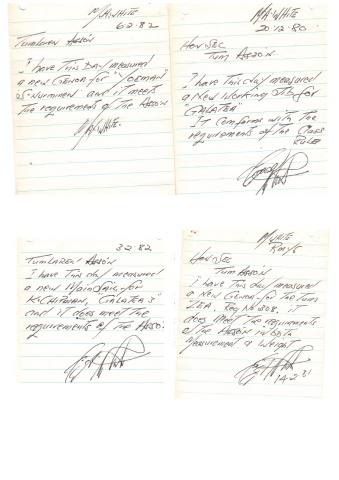 M.A. WHITE
6.2.82
TUMLAREN ASSON
I HAVE THIS DAY MEASURED
a NEW GENOA FOR "
and it MEETS
THE REQUIREMENTS OF THE ASSON
M.A. WHITE.
M.A. WHITE
20.12.80.
HON SEC
TUM ASSON
I HAVE THIS day measured
a New Working JIB FOR
"GALATEA"
IT Conforms with THE
requirements OF THE Class
RULE
3.2.82
TUMLAREN ASSON
I HAVE THIS day measured
a new MAINSAIL FOR
"GALATEA 3"
and it does meet the
requirements of THE ASSO.
M WHITE
HON SEC
TUM ASSON
I HAVE THIS day measured
a NEW GENOA FOR THE TUM
Reg No 308. it
does MEET THE requirements
of THE ASSON in both
MEASUREMENT & WEIGHT
14.2.81